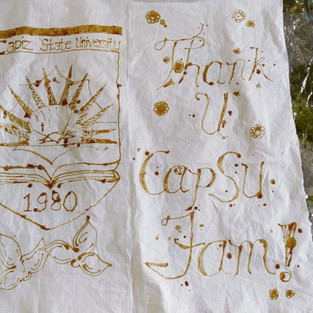 Capiz State University
1980
Thank
U
CapSU
Fam!